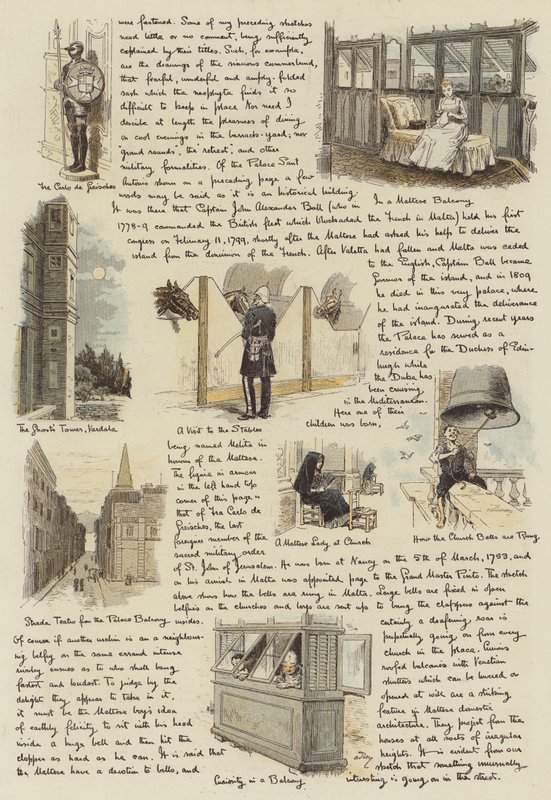 were fastened. Some of my preceding sketches
need little or no comment, being sufficiently
explained by their titles. Such, for example,
are the drawings of the sinuous cummerbund,
that fearful, wonderful and amply-folded
sash which the neophyte finds it so
difficult to keep in place. Nor need I
describe at length the pleasures of dining
on cool evenings in the barrack-yard; nor
grand rounds, the retreat, and other
military formalities. Of the Palace Sant
Antonio shown on a preceding page a few
words may be said as it is an historical building.
Fra Carlo de Greisches
In a Maltese Balcony
It was there that Captain John Alexander Ball (who in
1778-9 commanded the British fleet which blockaded the French in Malta) held his first
congress on February 11, 1799, shortly after the Maltese had asked his help to deliver the
island from the dominion of the French. After Valetta had fallen and Malta was ceded
to the English, Captain Ball became
Governor of the island, and in 1809
he died in this very palace, where
he had inaugurated the deliverance
of the island. During recent years
the Palace has served as a
residence for the Duchess of Edin-
burgh while
the Duke has
been cruising
in the Mediterranean.
Here one of their
children was born,
The Ghosts' Tower, Verdala
A Visit to the Stables
being named Melita in
honour of the Maltese.
The figure in armour
in the left hand top
corner of this page is
that of Fra Carlo de
Greisches, the last
foreign member of the
sacred military order
A Maltese Lady at Church
How the Church Bells are Rung
of St. John of Jerusalem. He was born at Nancy on the 5th of March, 1753, and
on his arrival in Malta was appointed page to the Grand Master Pinto. The sketch
above shows how the bells are rung in Malta. Large bells are fixed in open
belfries in the churches and boys are sent up to bang the clappers against the
Strada Teatro from the Palace Balcony
insides.
Of course if another urchin is on a neighbour-
ing belfry on the same errand intense
rivalry ensues as to who shall bang
fastest and loudest. To judge by the
delight they appear to take in it,
it must be the Maltese boy's idea
of earthly felicity to sit with his head
inside a huge bell and then hit the
clapper as hard as he can. It is said that
the Maltese have a devotion to bells, and
certainly a deafening roar is
perpetually going on from every
church in the place. Curious
roofed balconies with Venetian
shutters which can be lowered or
opened at will are a striking
feature in Maltese domestic
architecture. They project from the
houses at all sorts of irregular
heights. It is evident from our
sketch that something unusually
interesting is going on in the street.
Curiosity in a Balcony